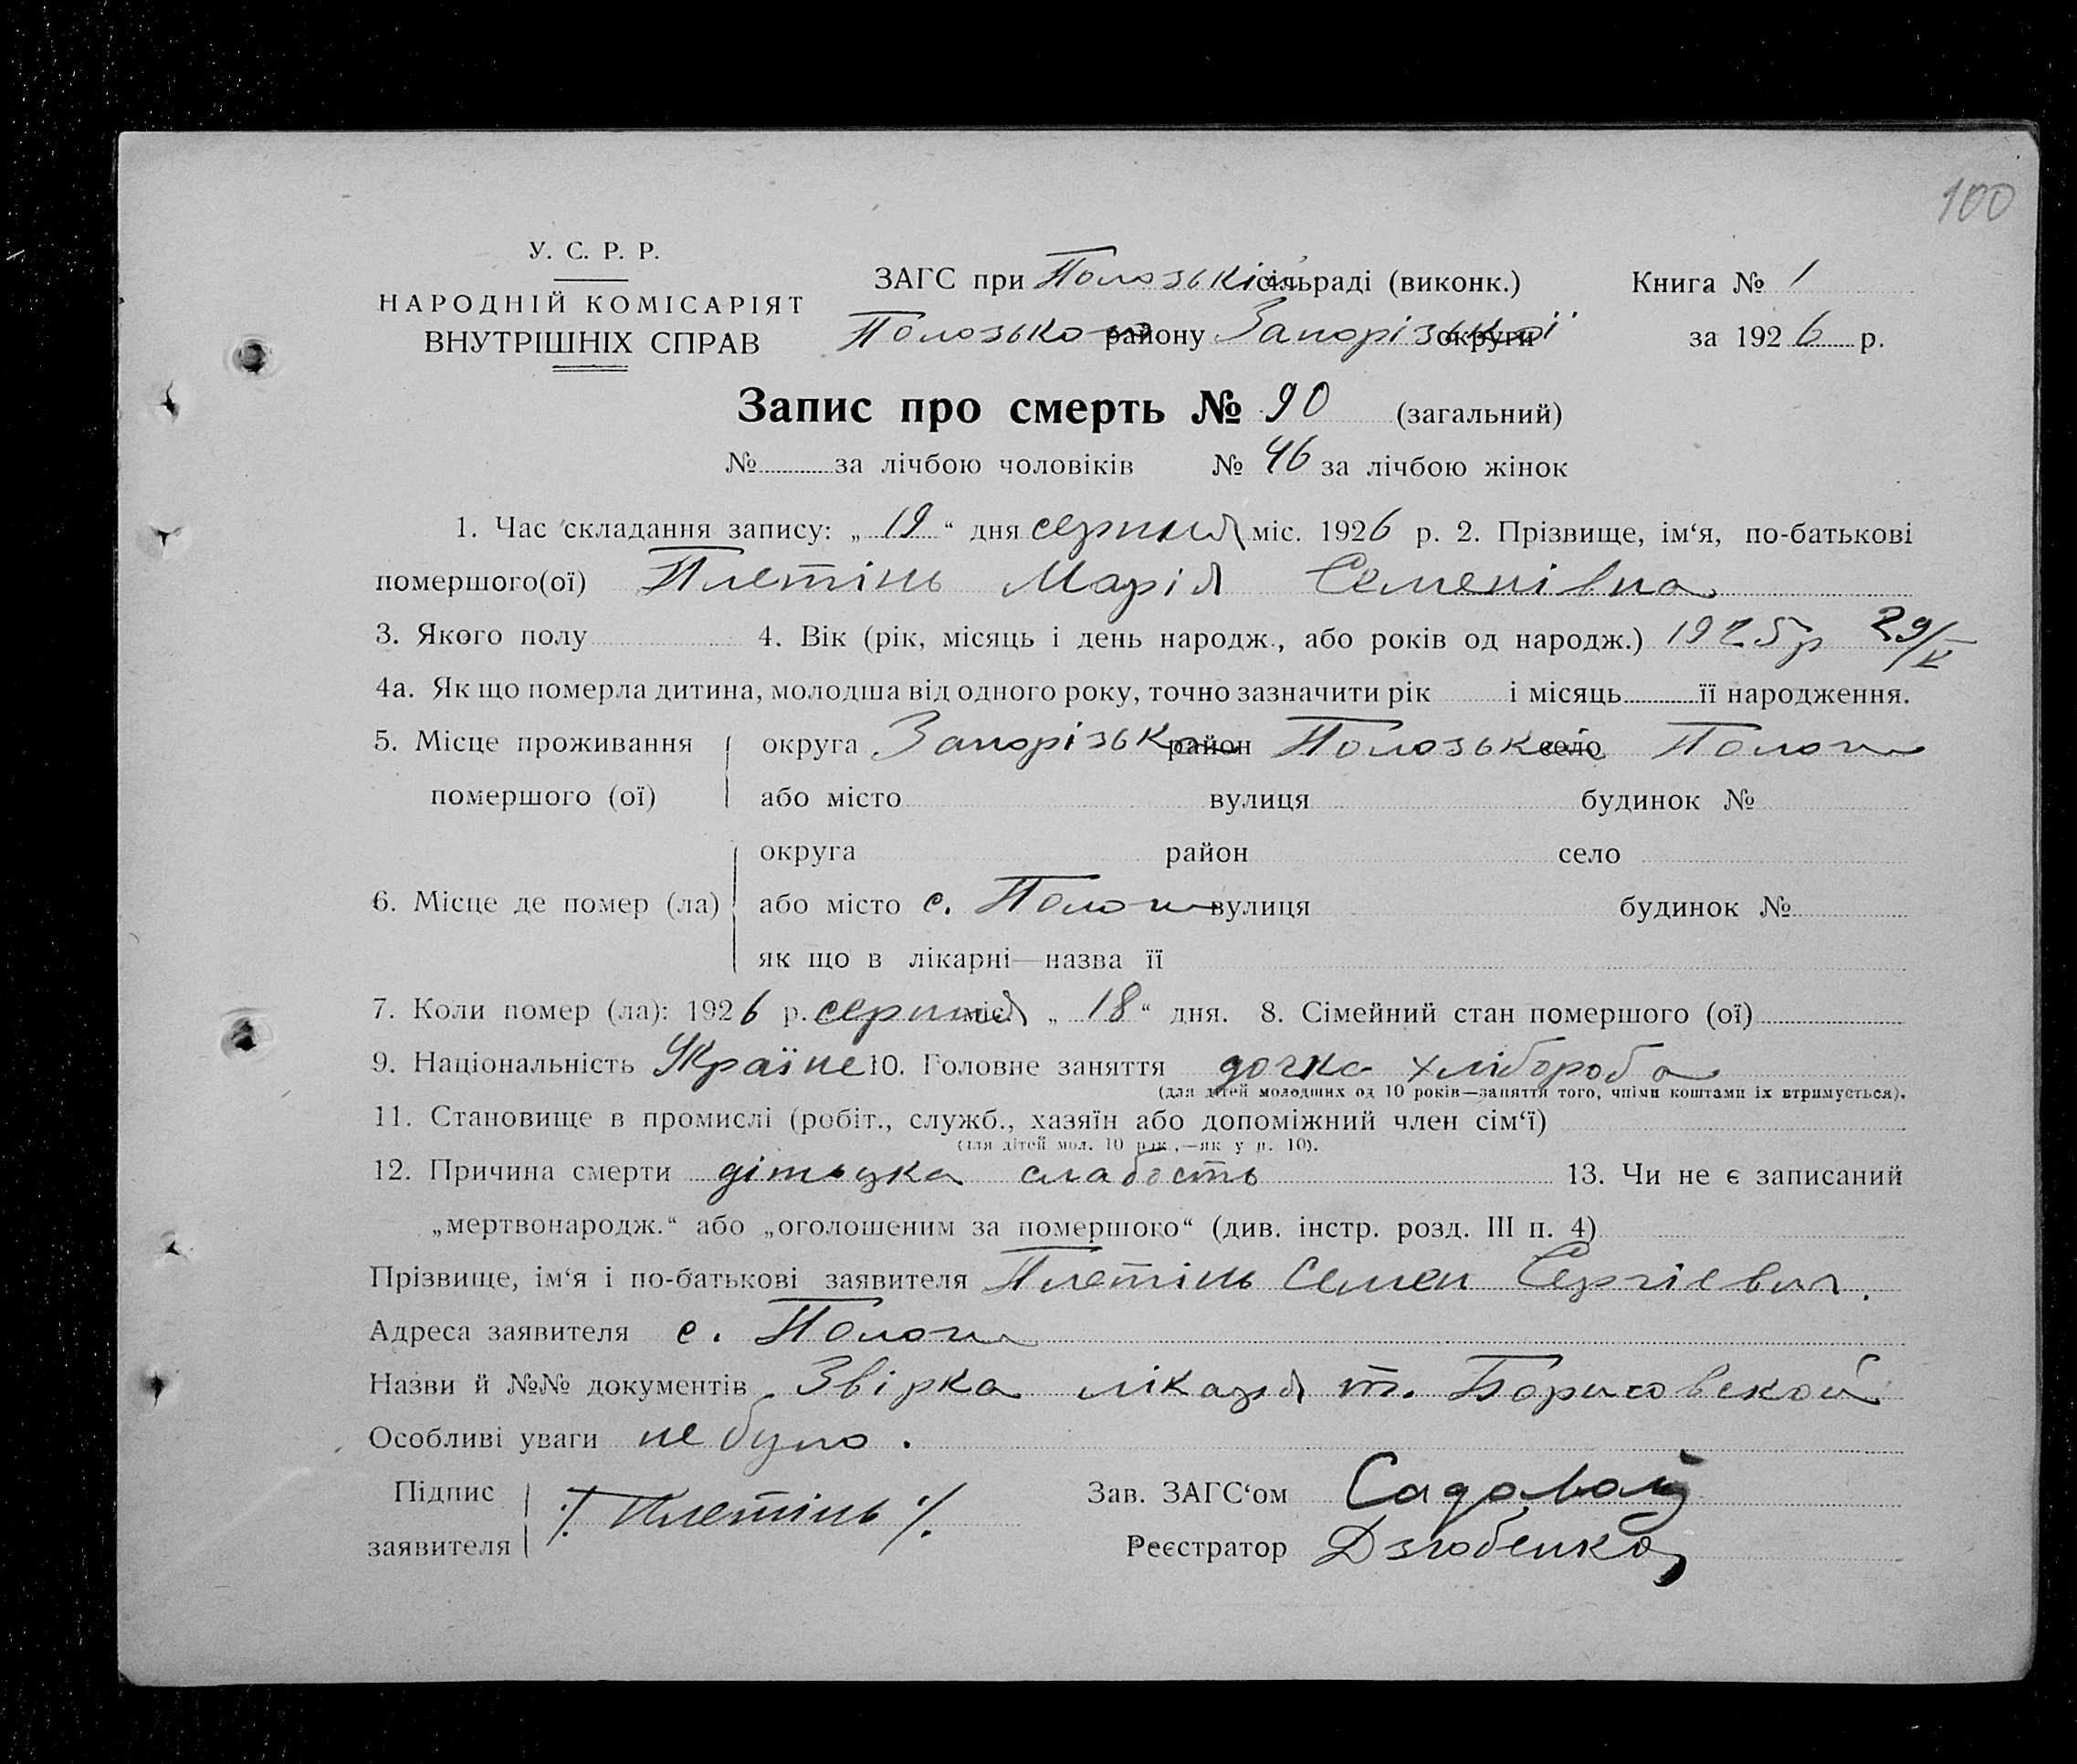 100
У. С. Р. Р.
НАРОДНІЙ КОМІСАРІЯТ
ВНУТРІШНІХ СПРАВ
ЗАГС при Полозькій сільраді (виконк.) Книга № 1
Полозького району Запорізької округи за 1926 р.
Запис про смерть № 90 (загальний)
№ за лічбою чоловіків № 46 за лічбою жінок
1. Час складання запису: „ 19 “ дня серпня міс. 1926 р. 2. Прізвище, ім‘я, по-батькові
помершого(ої) Плетінь Марія Семенівна
3. Якого полу 4. Вік (рік, місяць і день народж., або років од народж.) 1925 р 29/V
4а. Як що померла дитина, молодша від одного року, точно зазначити рік і місяць її народження.
5. Місце проживання округа Запорізька район Полозький село Пологи
помершого (ої) або місто вулиця будинок №
округа район село
6. Місце де помер (ла) або місто с. Пологи вулиця будинок №
як що в лікарні—назва її
7. Коли помер (ла): 1926 р. серпня міс. „ 18 “ дня. 8. Сімейний стан помершого (ої)
9. Національність Україне 10. Головне заняття дочка хлібороба
(для дітей молодших од 10 років—заняття того, чиїми коштами їх втримується).
11. Становище в промислі (робіт., служб., хазяїн або допоміжний член сім‘ї)
(для дітей мол. 10 рок.,—як у п. 10).
12. Причина смерти дітьцка слабость 13. Чи не є записаний
„мертвонародж.“ або „оголошеним за помершого“ (див. інстр. розд. III п. 4)
Прізвище, ім‘я і по-батькові заявителя Плетінь Семен Сергієвич.
Адреса заявителя с. Пологи
Назви й №№ документів Звірка лікаря т. Борисовской
Особливі уваги не було.
Підпис
заявителя /Плетінь/.
Зав. ЗАГС‘ом Садовой
Реєстратор Дзюбенко